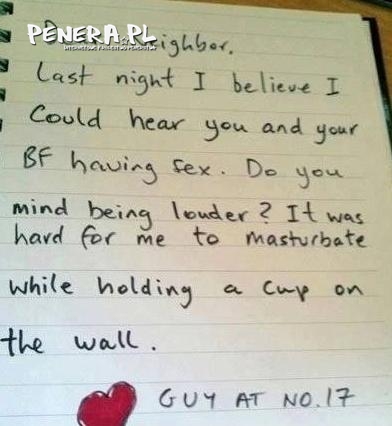 PENERA.PL
neighbor.
Last night I believe I
Could hear you and your
BF having sex. Do you
mind being louder? It was
hard for me to masturbate
while holding a cup on
the wall.
GUY AT NO.17